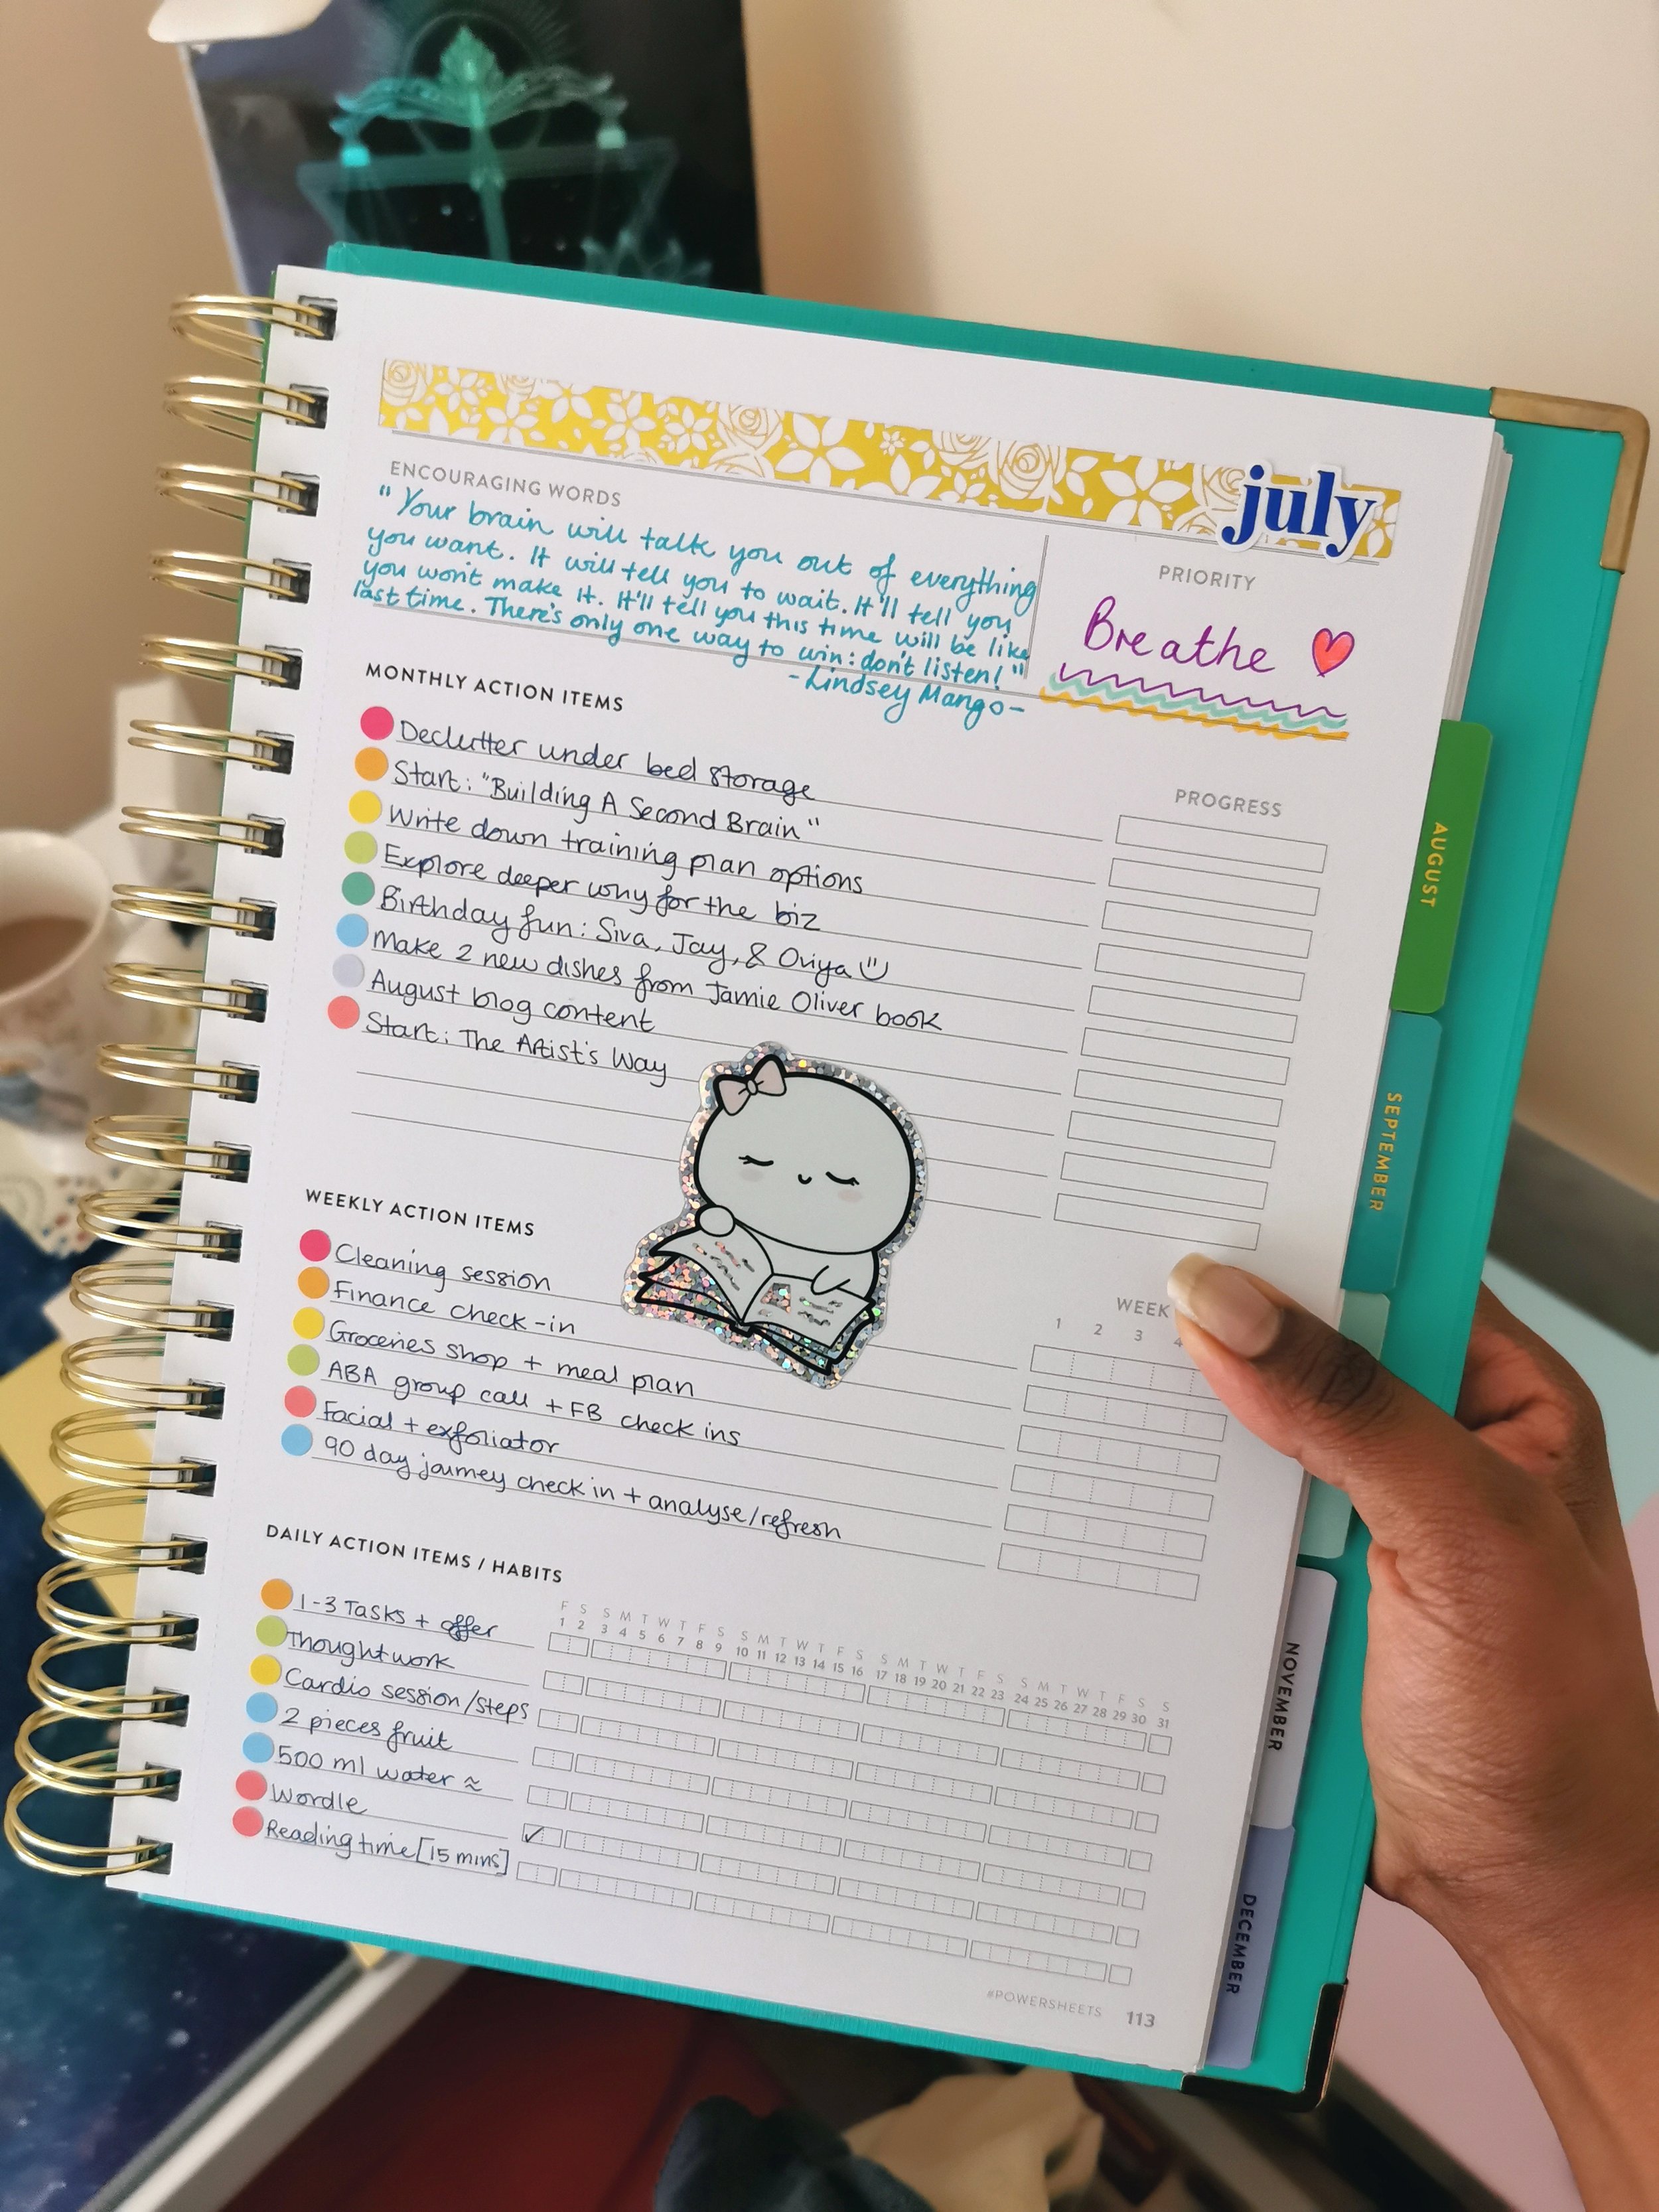 july
ENCOURAGING WORDS
"Your brain will talk you out of everything
you want. It will tell you to wait. It'll tell you
you won't make it. It'll tell you this time will be like
last time. There's only one way to win: don't listen!"
-Lindsey Mango-
PRIORITY
Breathe
MONTHLY ACTION ITEMS
PROGRESS
Declutter under bed storage
Start: "Building A Second Brain"
Write down training plan options
Explore deeper why for the biz
Birthday fun: Siva, Jay, & Oviya
Make 2 new dishes from Jamie Oliver book
August blog content
Start: The Artist's Way
WEEKLY ACTION ITEMS
WEEK
1 2 3 4
Cleaning session
Finance check-in
Groceries shop + meal plan
ABA group call + FB check ins
Facial + exfoliator
90 day journey check in + analyse/refresh
DAILY ACTION ITEMS / HABITS
F S S M T W T F S S M T W T F S S M T W T F S S M T W T F S S
1 2 3 4 5 6 7 8 9 10 11 12 13 14 15 16 17 18 19 20 21 22 23 24 25 26 27 28 29 30 31
1-3 Tasks + offer
Thoughtwork
Cardio session/steps
2 pieces fruit
500 ml water ≈
Wordle
Reading time [15 mins]
#POWERSHEETS 113
AUGUST
SEPTEMBER
NOVEMBER
DECEMBER